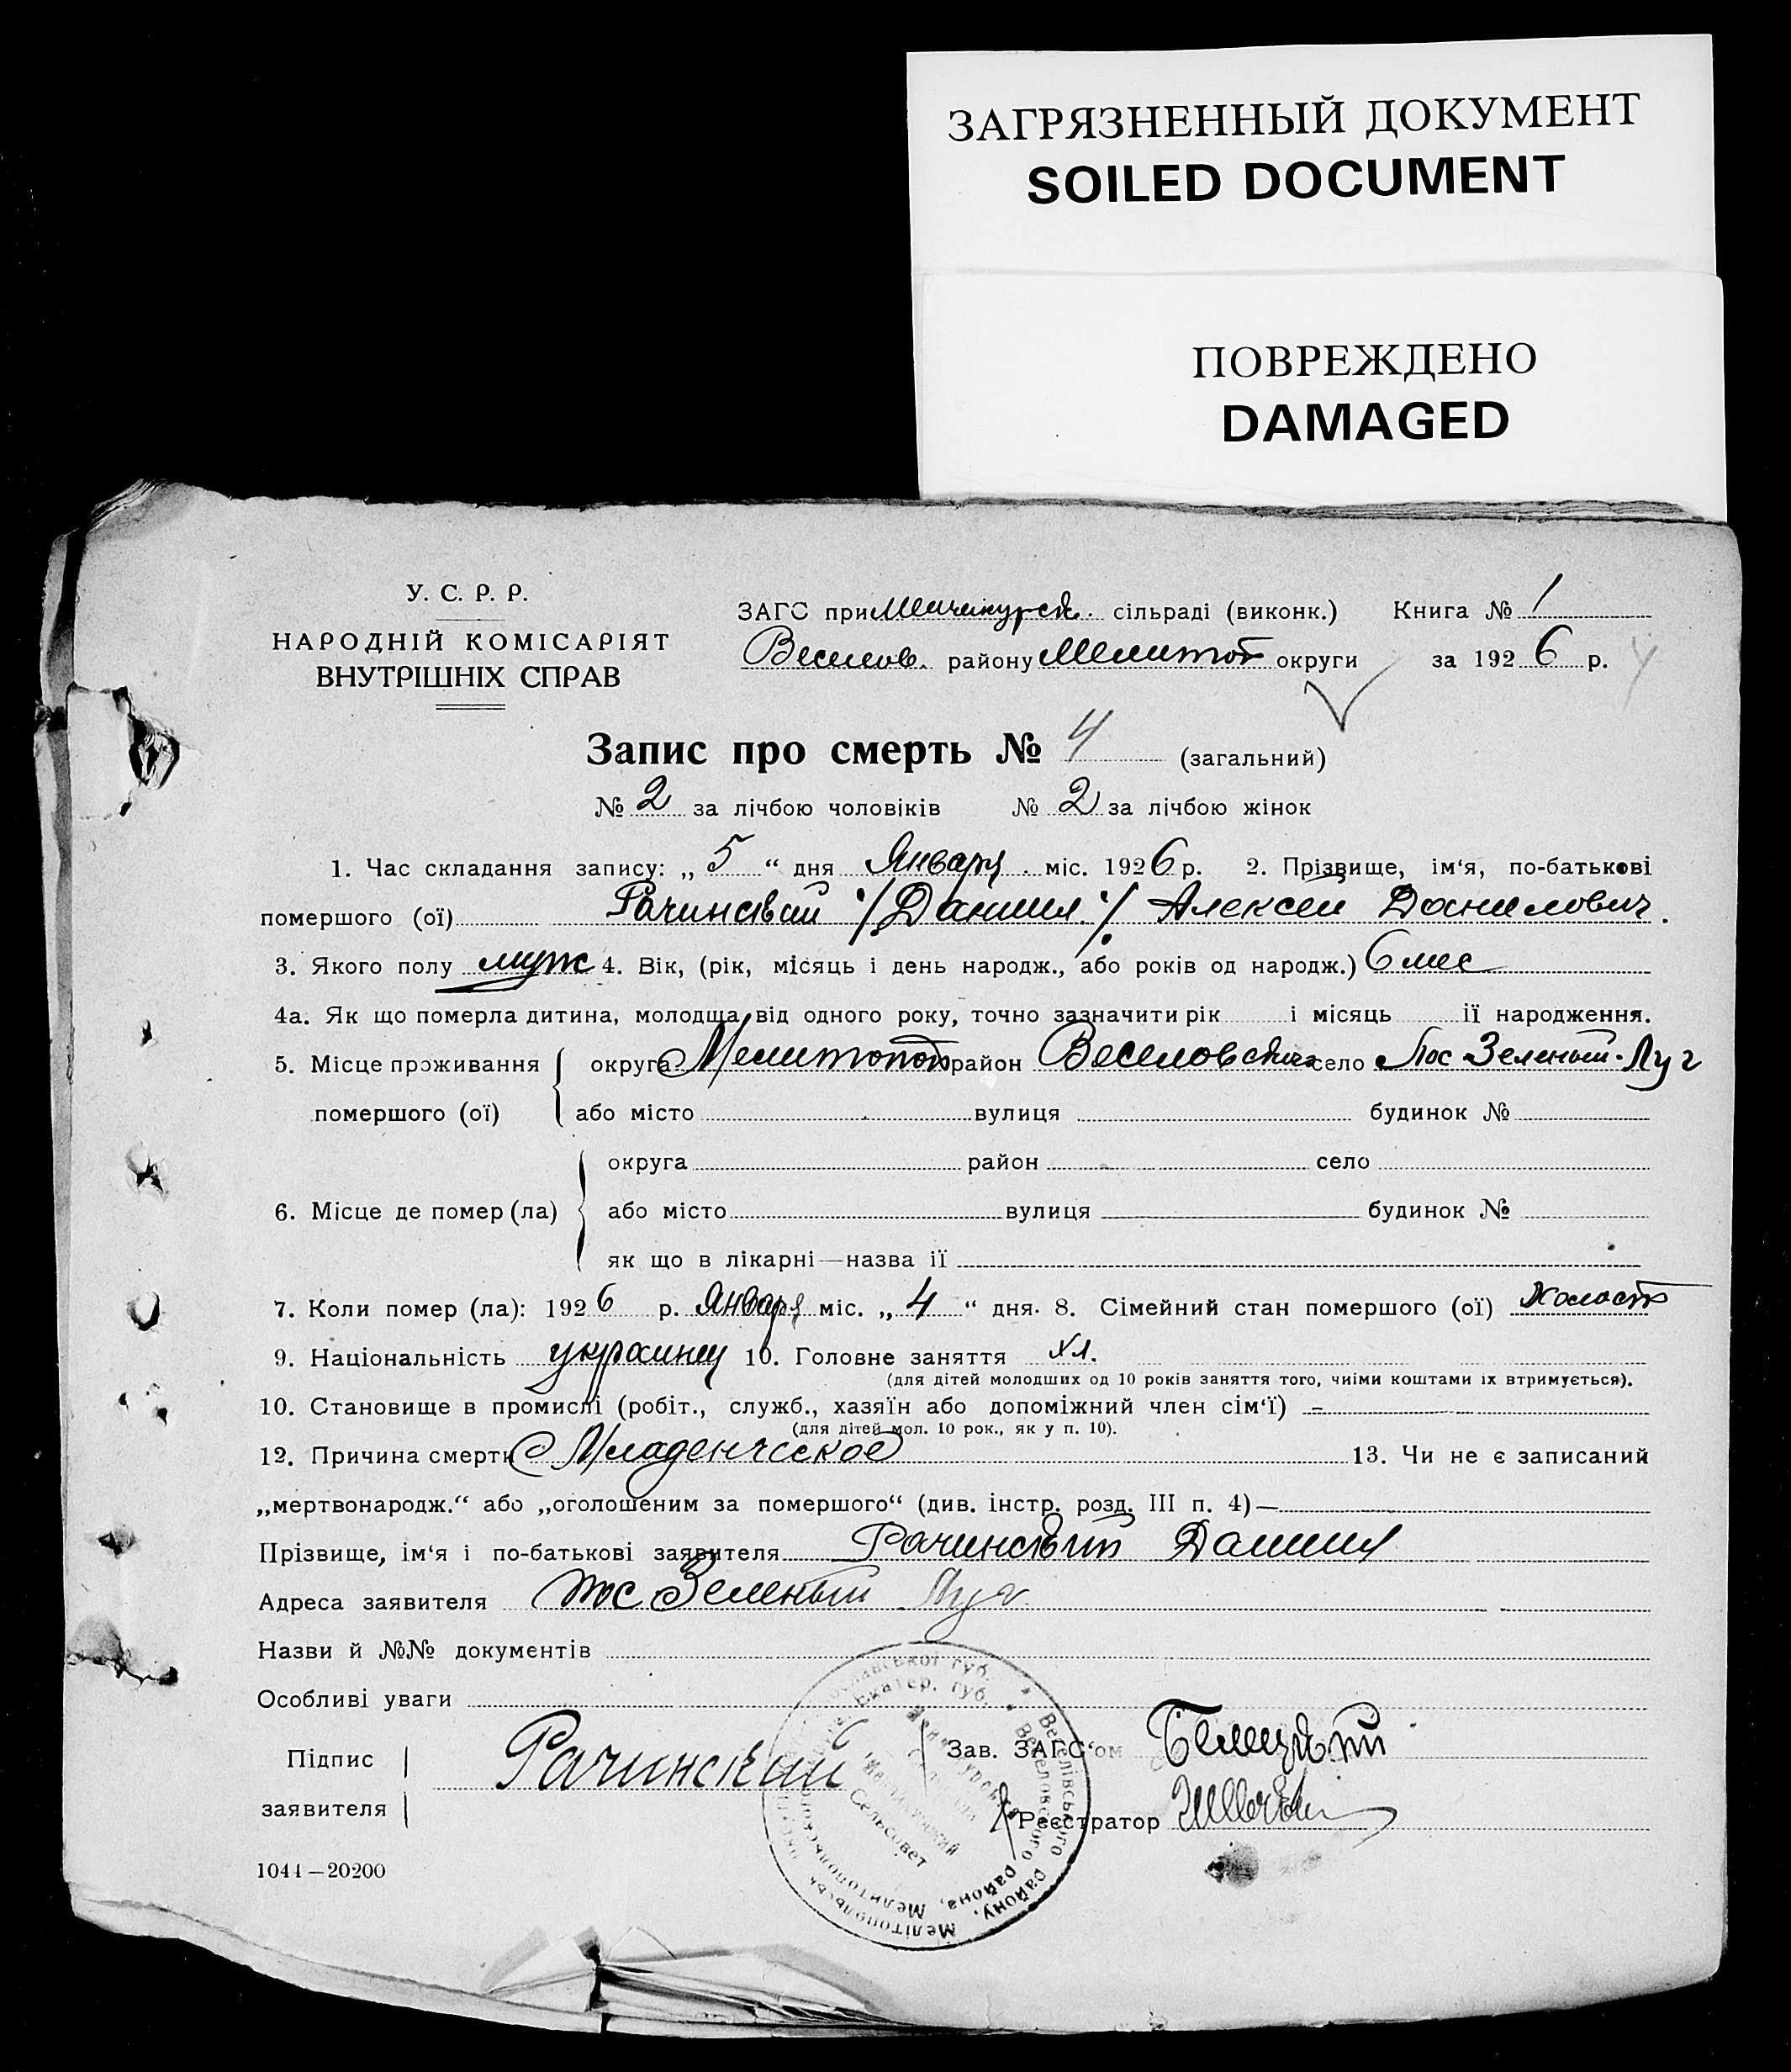 ЗАГРЯЗНЕННЫЙ ДОКУМЕНТ
SOILED DOCUMENT
ПОВРЕЖДЕНО
DAMAGED
У. С. Р. Р.
НАРОДНІЙ КОМІСАРІЯТ
ВНУТРІШНІХ СПРАВ
ЗАГС при Менчикурск. сільраді (виконк.) Книга № 1
Веселов. району Мелитоп округи за 1926 р. 4
Запис про смерть № 4 (загальний)
№ 2 за лічбою чоловіків № 2 за лічбою жінок
1. Час складання запису: „ 5 “ дня Января міс. 1926 р. 2. Прізвище, ім‘я, по-батькові
помершого (ої) Рачинский /Даниил/ Алексей Данилович.
3. Якого полу муж 4. Вік, (рік, місяць і день народж., або років од народж.) 6 мес
4а. Як що померла дитина, молодша від одного року, точно зазначити рік і місяць ії народження.
5. Місце проживання округа Мелитопол район Веселовский село Пос Зеленый-Луг
помершого (ої) або місто вулиця будинок №
округа район село
6. Місце де помер (ла) або місто вулиця будинок №
як що в лікарні—назва ії
7. Коли помер (ла): 1926 р. Января міс. „ 4 “ дня. 8. Сімейний стан помершого (ої) холост
9. Національність украинец 10. Головне заняття хл.
(для дітей молодших од 10 років заняття того, чиїми коштами їх втримується).
10. Становище в промислі (робіт., служб., хазяїн або допоміжний член сім‘ї) –
(для дітей мол. 10 рок., як у п. 10).
12. Причина смерти С Младенческое 13. Чи не є записаний
„мертвонародж.“ або „оголошеним за помершого“ (див. інстр. розд. III п. 4)—
Прізвище, ім‘я і по-батькові заявителя Рачинский Даниил
Адреса заявителя пос Зеленый Луг
Назви й №№ документів
Особливі уваги
Підпис заявителя Рачинский
Зав. ЗАГС‘ом Белецкий
Реєстратор
Веселівського району, Мелітопольськ
Екатер. губ. Веселовского района, Мелитопольского
Сельсовет
1044—20200